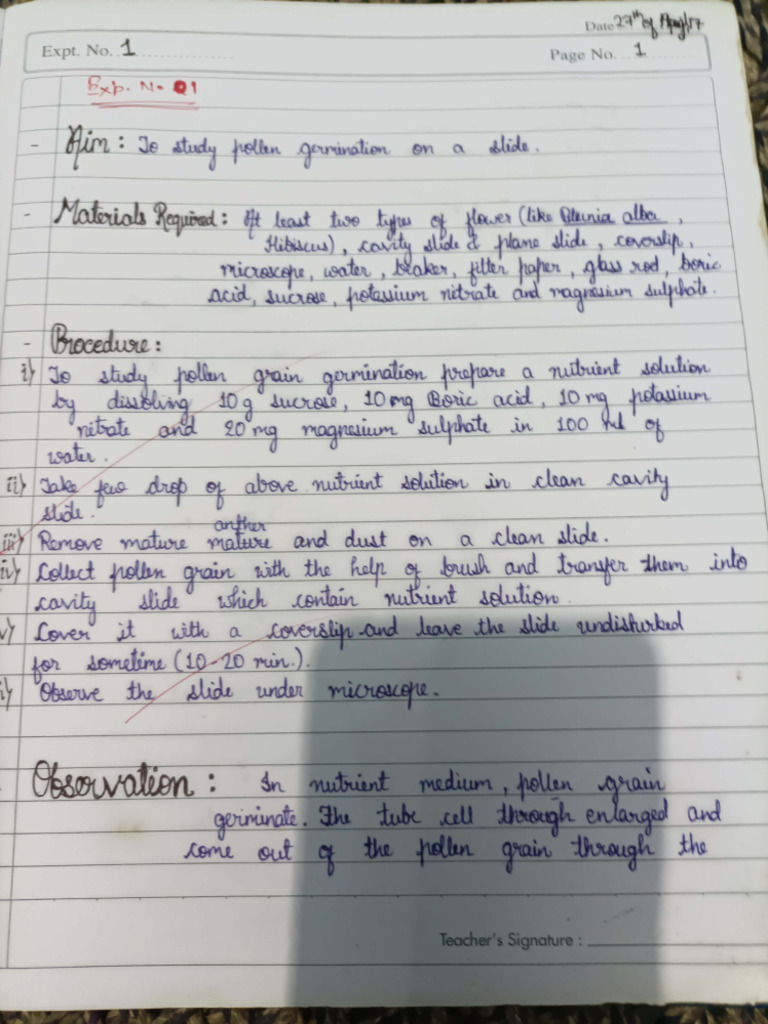 Date 27th of
Expt. No. 1
Page No. 1
Exp. No 01
- Aim : To study pollen germination on a slide.
- Materials Required : At least two types of flower (like alba,
Hibiscus), cavity slide & plane slide, coverslip,
microscope, water, beaker, filter paper, glass rod, boric
acid, sucrose, potassium nitrate and magnesium sulphate.
- Procedure :
i) To study pollen grain germination prepare a nutrient solution
by dissolving 10g sucrose, 10mg Boric acid, 10 mg potassium
nitrate and 20 mg magnesium sulphate in 100 ml of
water.
ii) Take few drop of above nutrient solution in clean cavity
slide.
anther
iii) Remove mature mature and dust on a clean slide.
iv) Collect pollen grain with the help of brush and transfer them into
cavity slide which contain nutrient solution.
v) Cover it with a coverslip and leave the slide undisturbed
for sometime (10-20 min.).
i) Observe the slide under microscope.
Observation : In nutrient medium, pollen grain
germinate. The tube cell through enlarged and
come out of the pollen grain through the
Teacher's Signature :